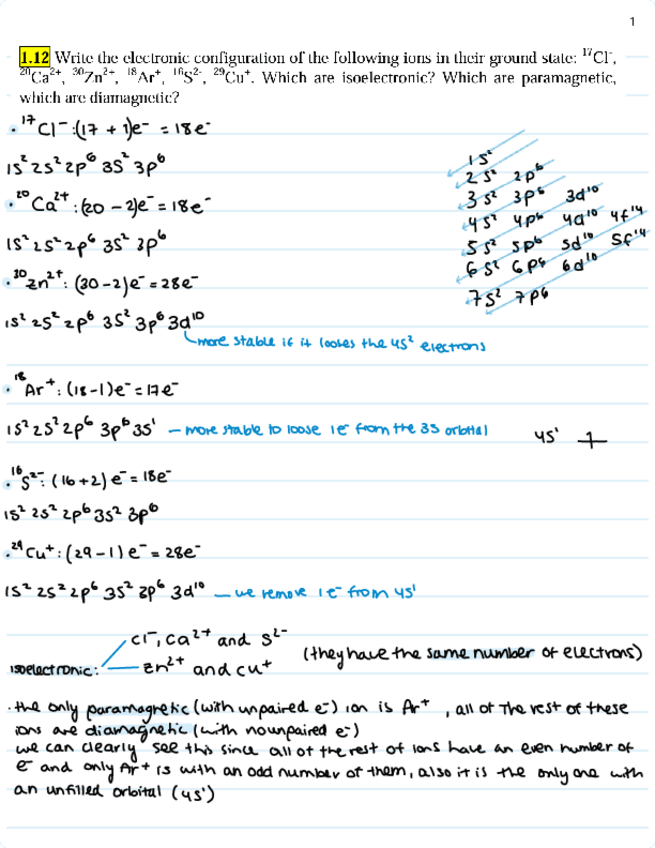 1
1.12 Write the electronic configuration of the following ions in their ground state: ¹⁷Cl⁻,
²⁰Ca²⁺, ³⁰Zn²⁺, ¹⁸Ar⁺, ¹⁶S²⁻, ²⁹Cu⁺. Which are isoelectronic? Which are paramagnetic,
which are diamagnetic?
• ¹⁷Cl⁻:(17 + 1)e⁻ = 18e⁻
1s² 2s² 2p⁶ 3s² 3p⁶
• ²⁰Ca²⁺: (20 - 2)e⁻ = 18e⁻
1s² 2s² 2p⁶ 3s² 3p⁶
• ³⁰Zn²⁺: (30-2)e⁻ = 28e⁻
1s² 2s² 2p⁶ 3s² 3p⁶ 3d¹⁰
more stable if it looses the 4s² electrons
1s²
2s² 2p⁶
3s² 3p⁶ 3d¹⁰
4s² 4p⁶ 4d¹⁰ 4f¹⁴
5s² 5p⁶ 5d¹⁰ 5f¹⁴
6s² 6p⁶ 6d¹⁰
7s² 7p⁶
• ¹⁸Ar⁺: (18-1)e⁻ = 17e⁻
1s² 2s² 2p⁶ 3p⁶ 3s¹ – more stable to loose 1e⁻ from the 3s orbital
4s¹
• ¹⁶S²⁻: (16+2) e⁻ = 18e⁻
1s² 2s² 2p⁶ 3s² 3p⁶
• ²⁹Cu⁺: (29-1) e⁻ = 28e⁻
1s² 2s² 2p⁶ 3s² 3p⁶ 3d¹⁰ – we remove 1e⁻ from 4s¹
isoelectronic:
Cl⁻, Ca²⁺ and S²⁻
Zn²⁺ and Cu⁺
(they have the same number of electrons)
• the only paramagnetic (with unpaired e⁻) ion is Ar⁺ , all of the rest of these
ions are diamagnetic (with no unpaired e⁻)
we can clearly see this since all of the rest of ions have an even number of
e⁻ and only Ar⁺ is with an odd number of them, also it is the only one with
an unfilled orbital (4s¹)